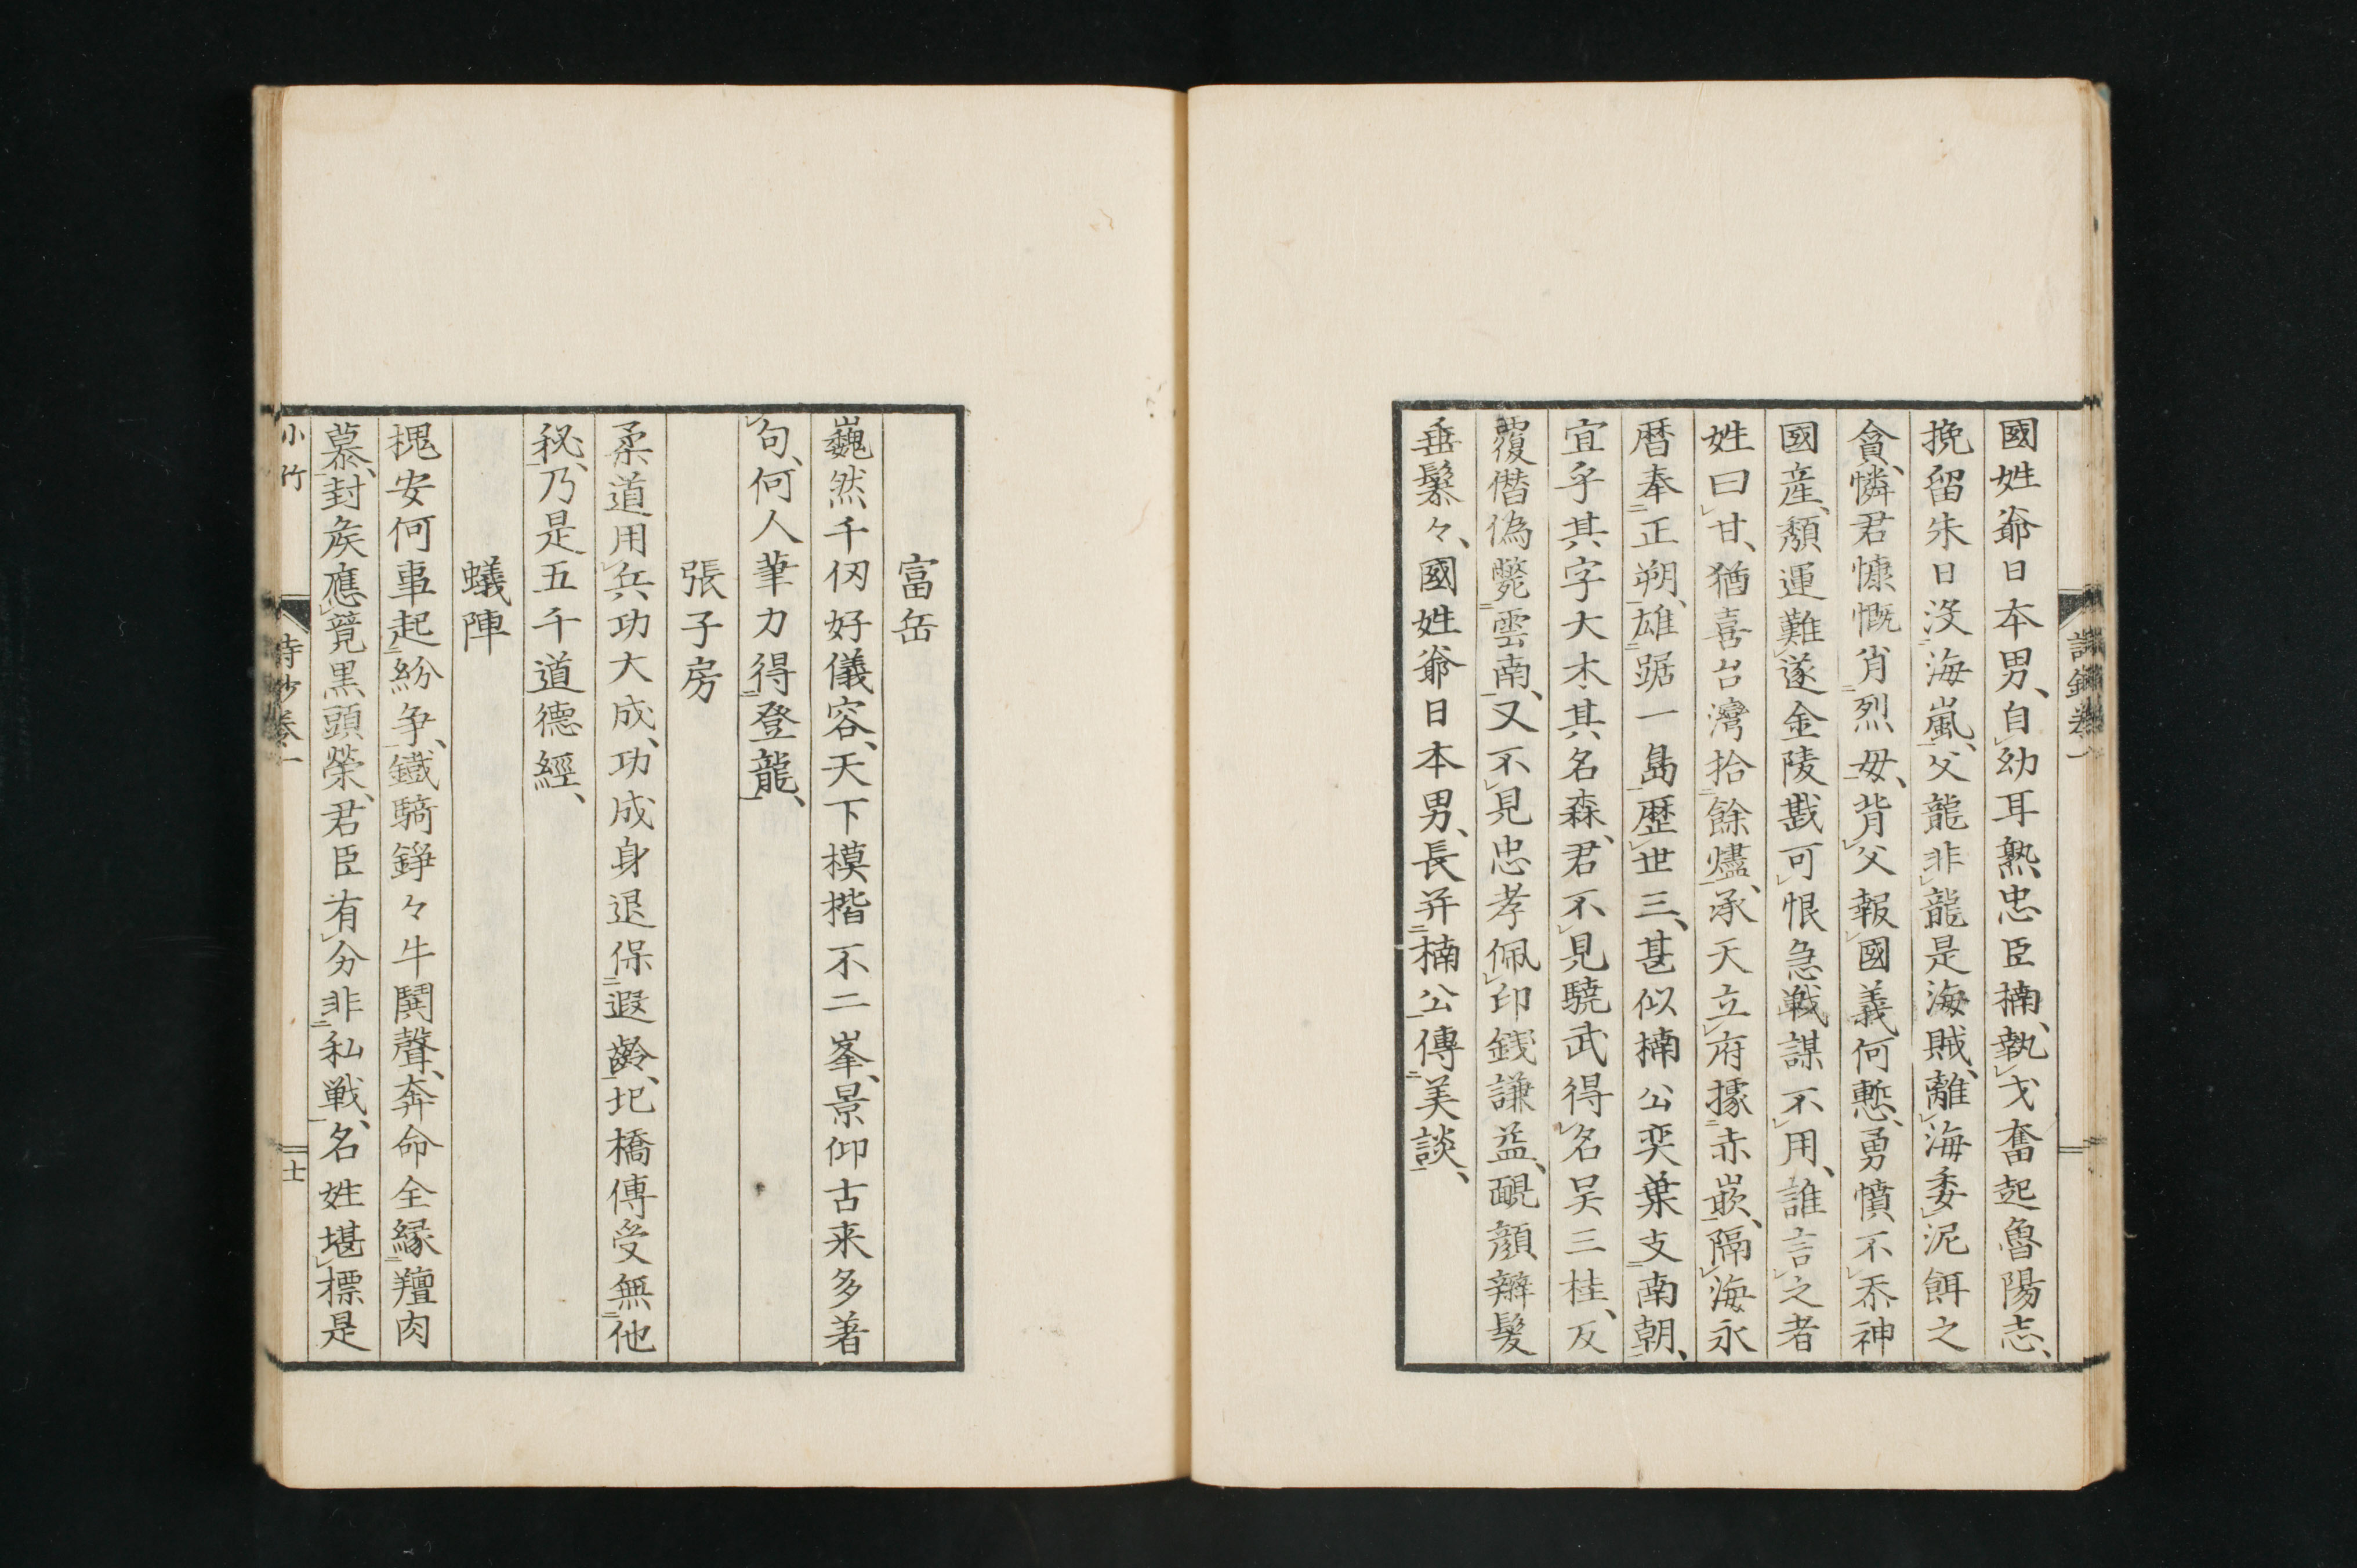 國姓爺日本男、自幼耳熟忠臣楠、執戈奮起魯陽志、
挽留朱日沒海嵐、父龍非龍是海賊、離海委泥餌之
貪、憐君慷慨肖烈母、背父報國義何慙、勇憤不忝神
國産、頽運難遂金陵戡可恨急戦謀不用、誰言之者
姓曰甘、猶喜台灣拾餘燼、承天立府據赤嵌、隔海永
暦奉正朔、雄踞一島歴世三、甚似楠公奕葉支南朝、
宜乎其字大木其名森、君不見驍武得名吴三桂、反
覆僭偽斃雲南、又不見忠孝佩印錢謙益、靦顔辮髮
垂鬖々、國姓爺日本男、長并楠公傳美談、
富岳
巍然千仭好儀容、天下模揩不二峯、景仰古来多著
句、何人筆力得登龍、
張子房
柔道用兵功大成、功成身退保遐齡、圯橋傳受無他
秘、乃是五千道德經、
蟻陣
槐安何事起紛争、鐵騎錚々牛鬨聲、奔命全縁羶肉
慕、封矦應竟黒頭榮、君臣有分非私戦、名姓堪標是
小竹
詩鈔卷一
十一